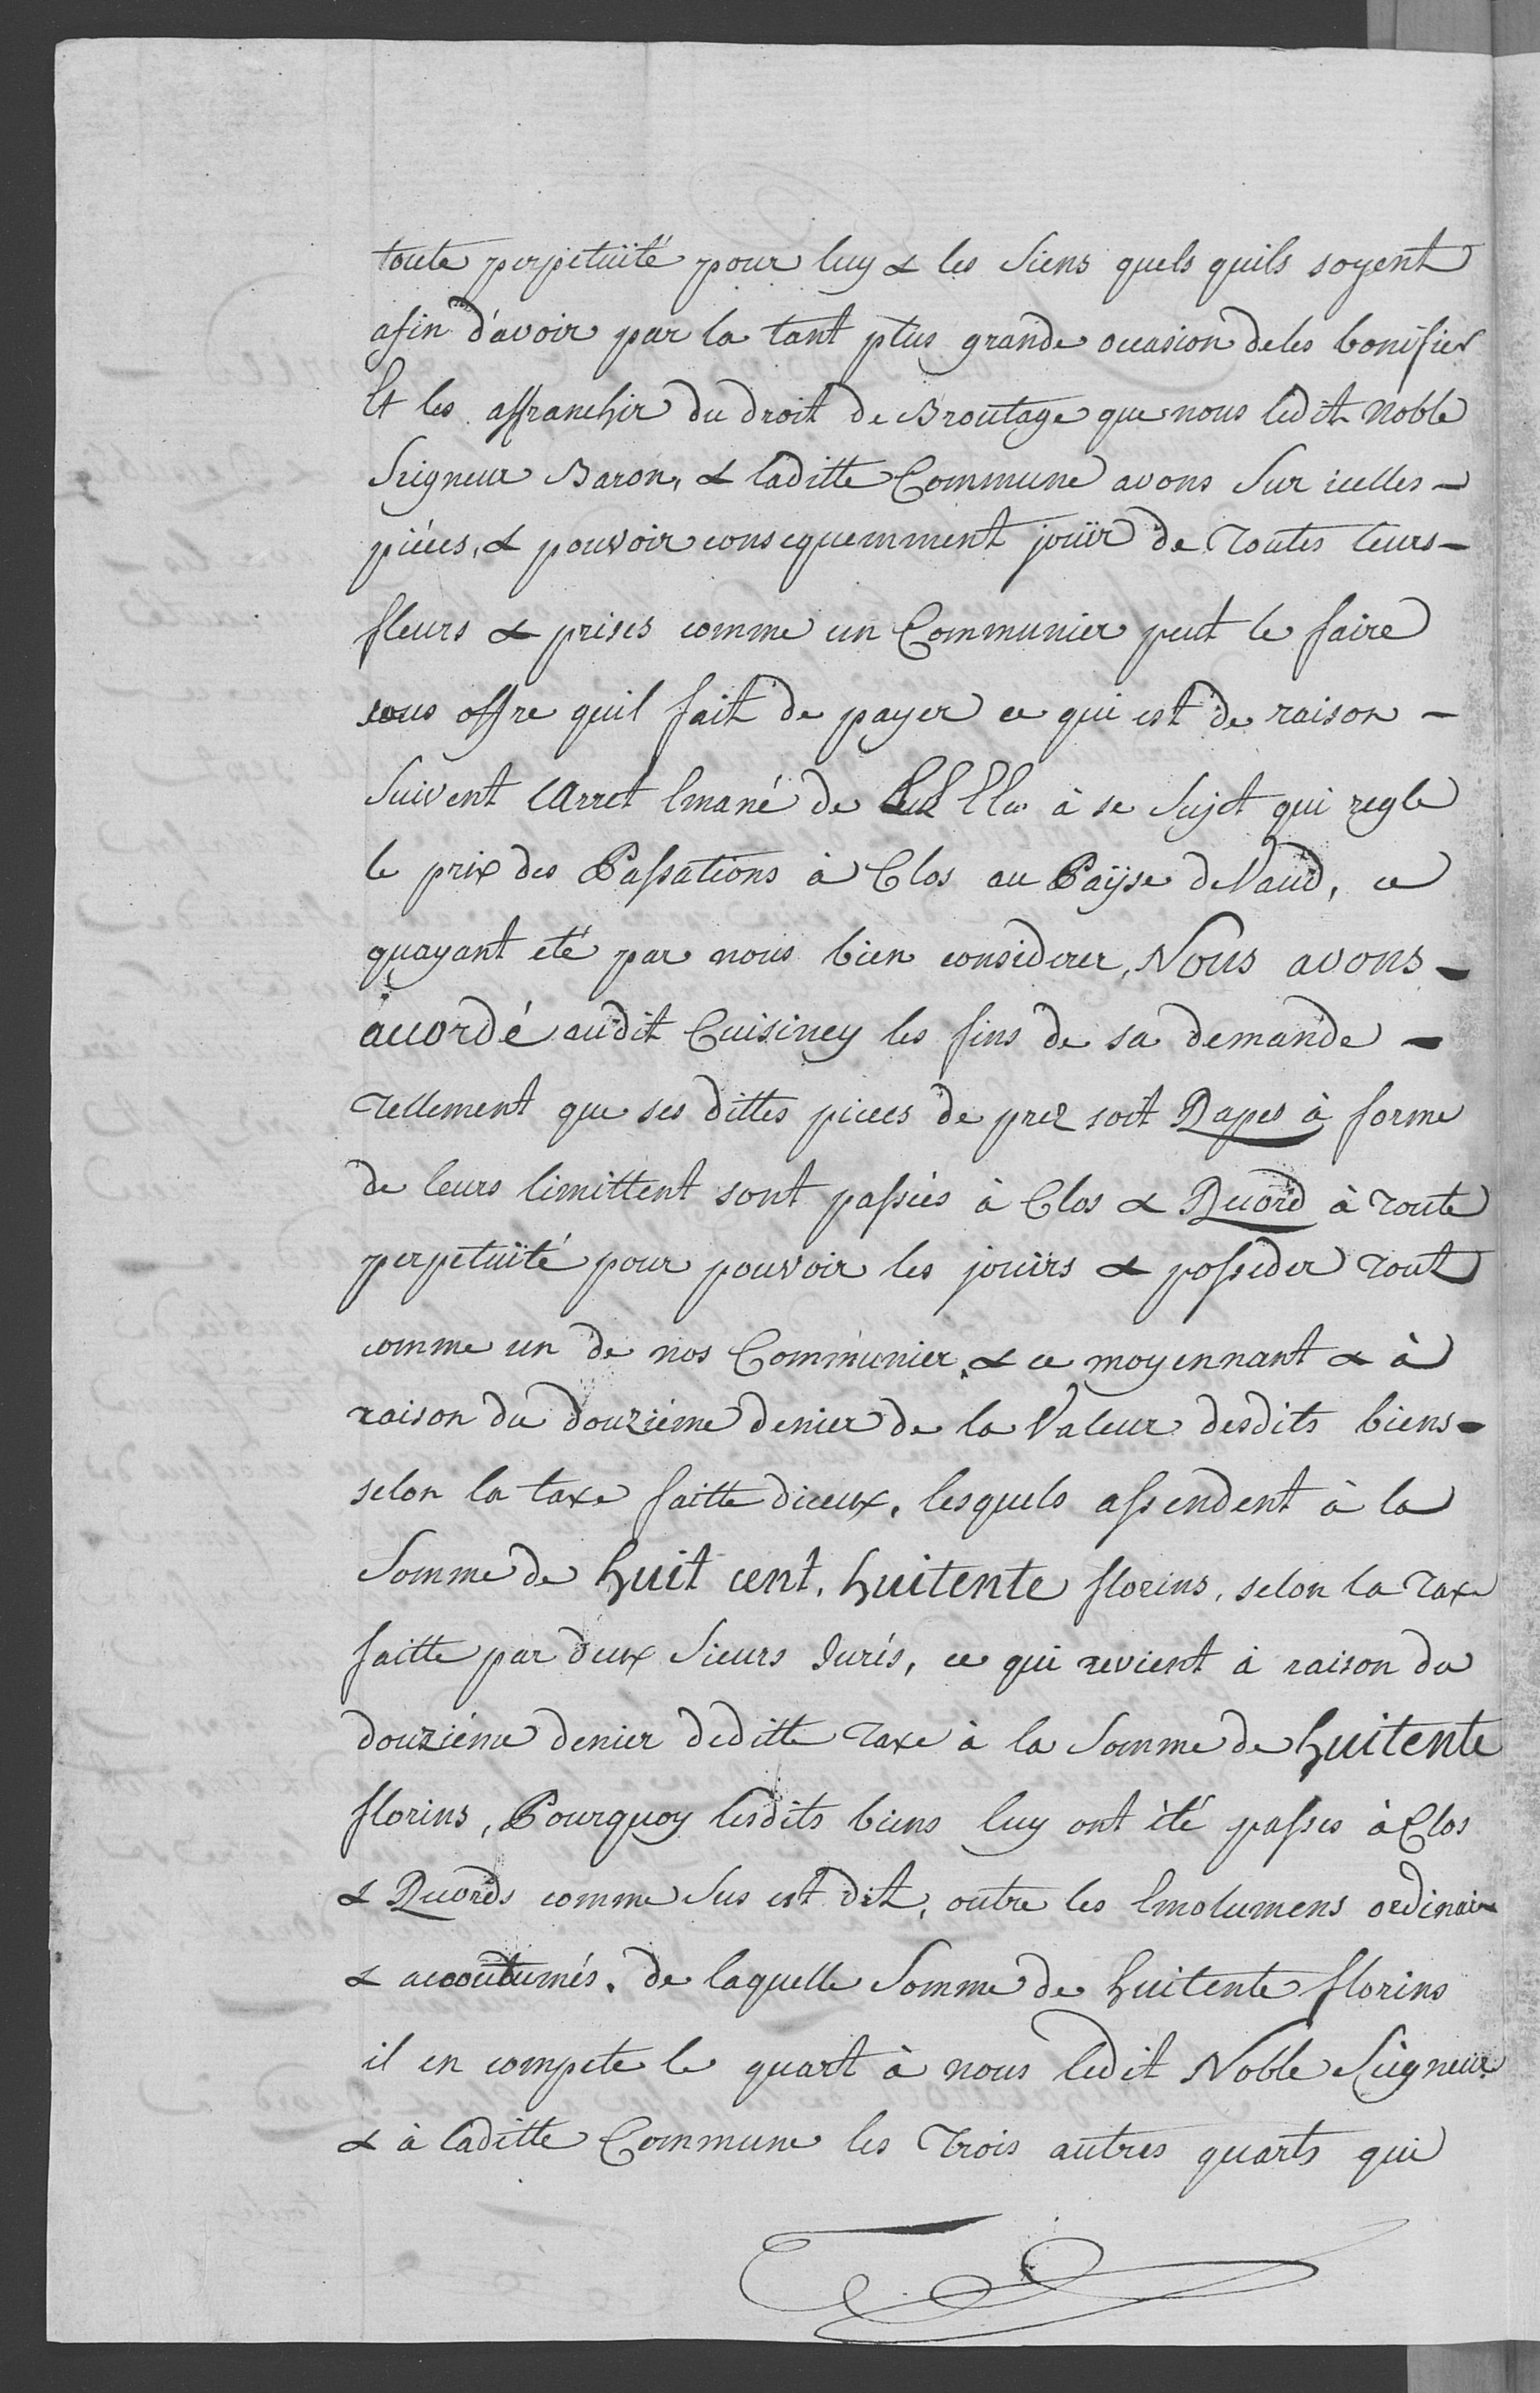 toute perpetuïté pour luy & les Siens quels quils soyent
afin d'avoir par la tant plus grande occasion de les bonifier
Et les affranchir du droit de Broutage que nous ledit Noble
Seigneur Baron, & laditte Commune avons Sur icelles -
piéces, & pouvoir consequemment jouïr de Toutes leurs -
fleurs & prises comme un Communier peut le faire
sous offre quil fait de payer ce qui est de raison -
Suivent l'Arret Emané de LL EEces à se Sujet qui regle
le prix des Passations à Clos au Païse de Vaud, ce
quayant eté par nous bien considerer, Nous avons -
accordé audit Cuisiney les fins de sa demande -
Tellement que ses dittes pieces de prez soit Rapes à forme
de leurs limittent sont passées à Clos & Record à Toute
perpetuïté pour pouvoir les jouïrs & posseder Tout
comme un de nos Communier, & ce moyennant & à
raison du douziéme denier de la Valeur desdits biens -
selon la taxe faitte diceux, lesquels assendent à la
Somme de huit cent, huitente florins, selon la Taxe
faitte par deux Sieurs Jurés, ce qui revient à raison du
douziéme denier deditte Taxe à la Somme de huitente
florins, Pourquoy lesdits biens luy ont été passes à Clos
& Records comme Sus est dit, outre les Emolumens ordinai~
& accoutumés, de laquelle Somme de huitente florins
il en compete le quart à nous ledit Noble Seigneur
& à laditte Commune les Trois autres quarts qui